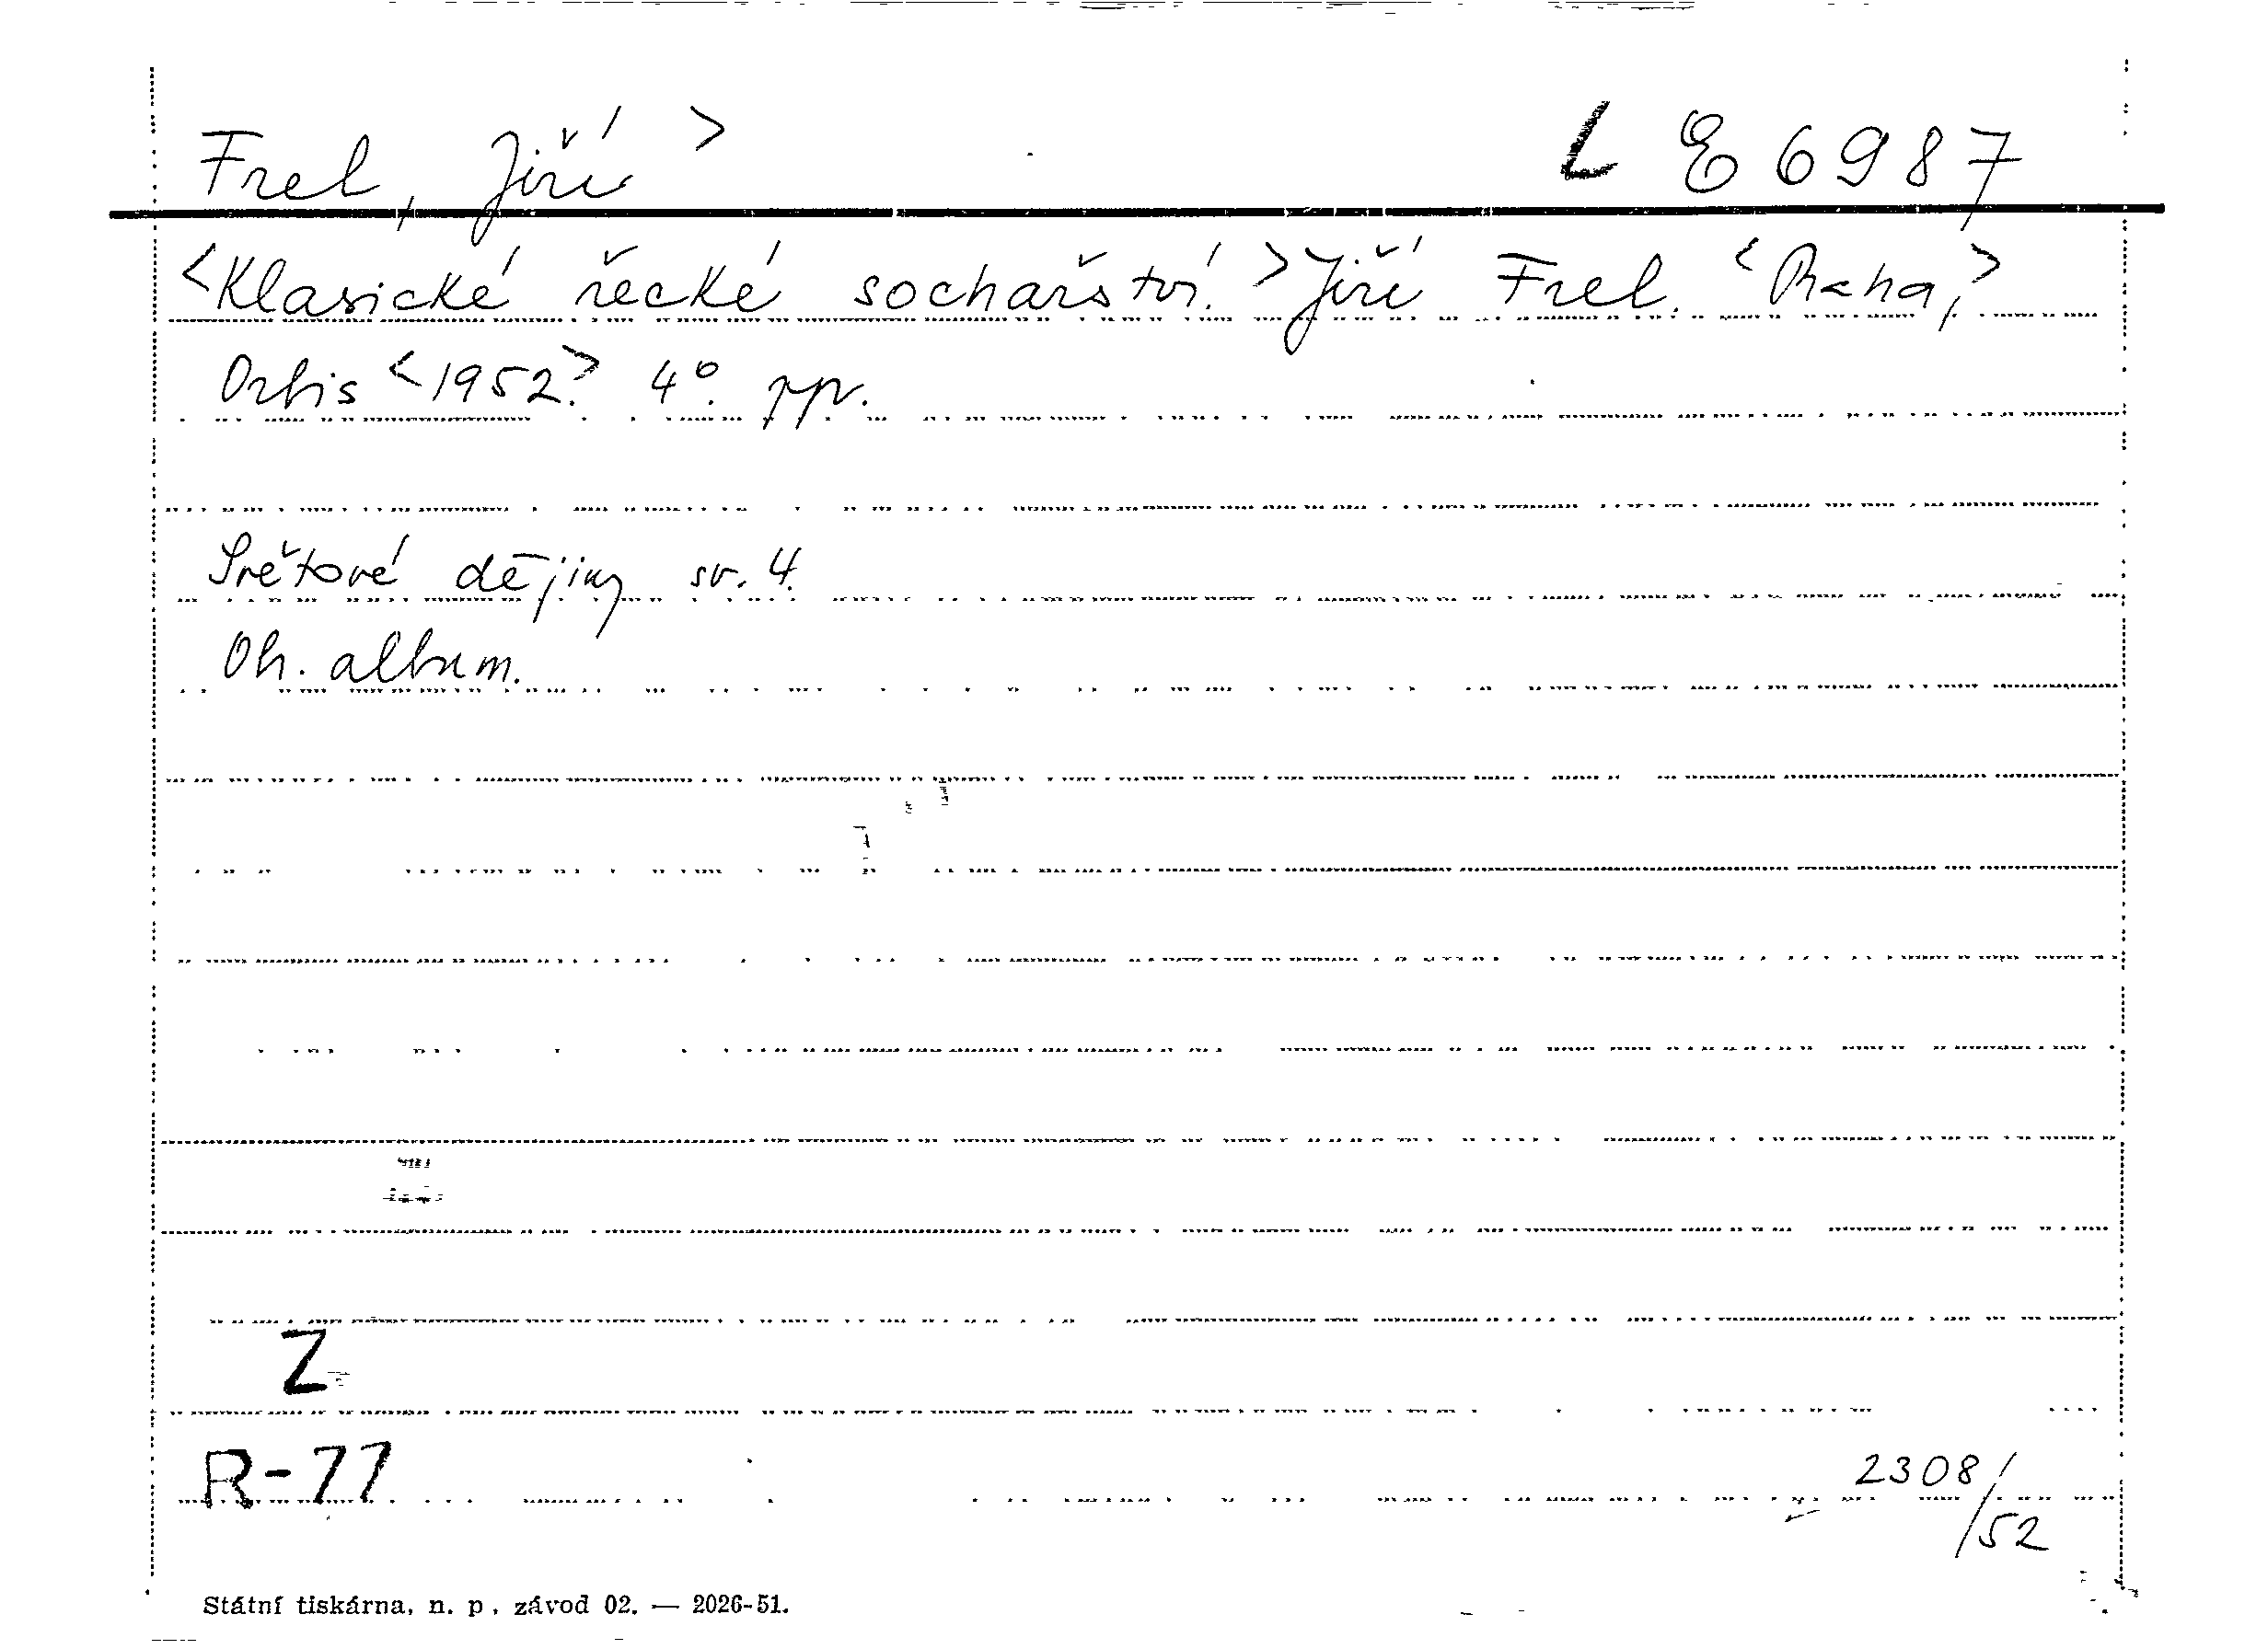 Frel, Jiří > L E 6987
<Klasické řecké sochařství.> Jiří Frel. <Praha,>
Orbis <1952.> 4°. ppr.
Světové dějiny sv. 4.
Ob. album.
Z
R-77
2308/52
Státní tiskárna, n. p., závod 02. — 2026-51.